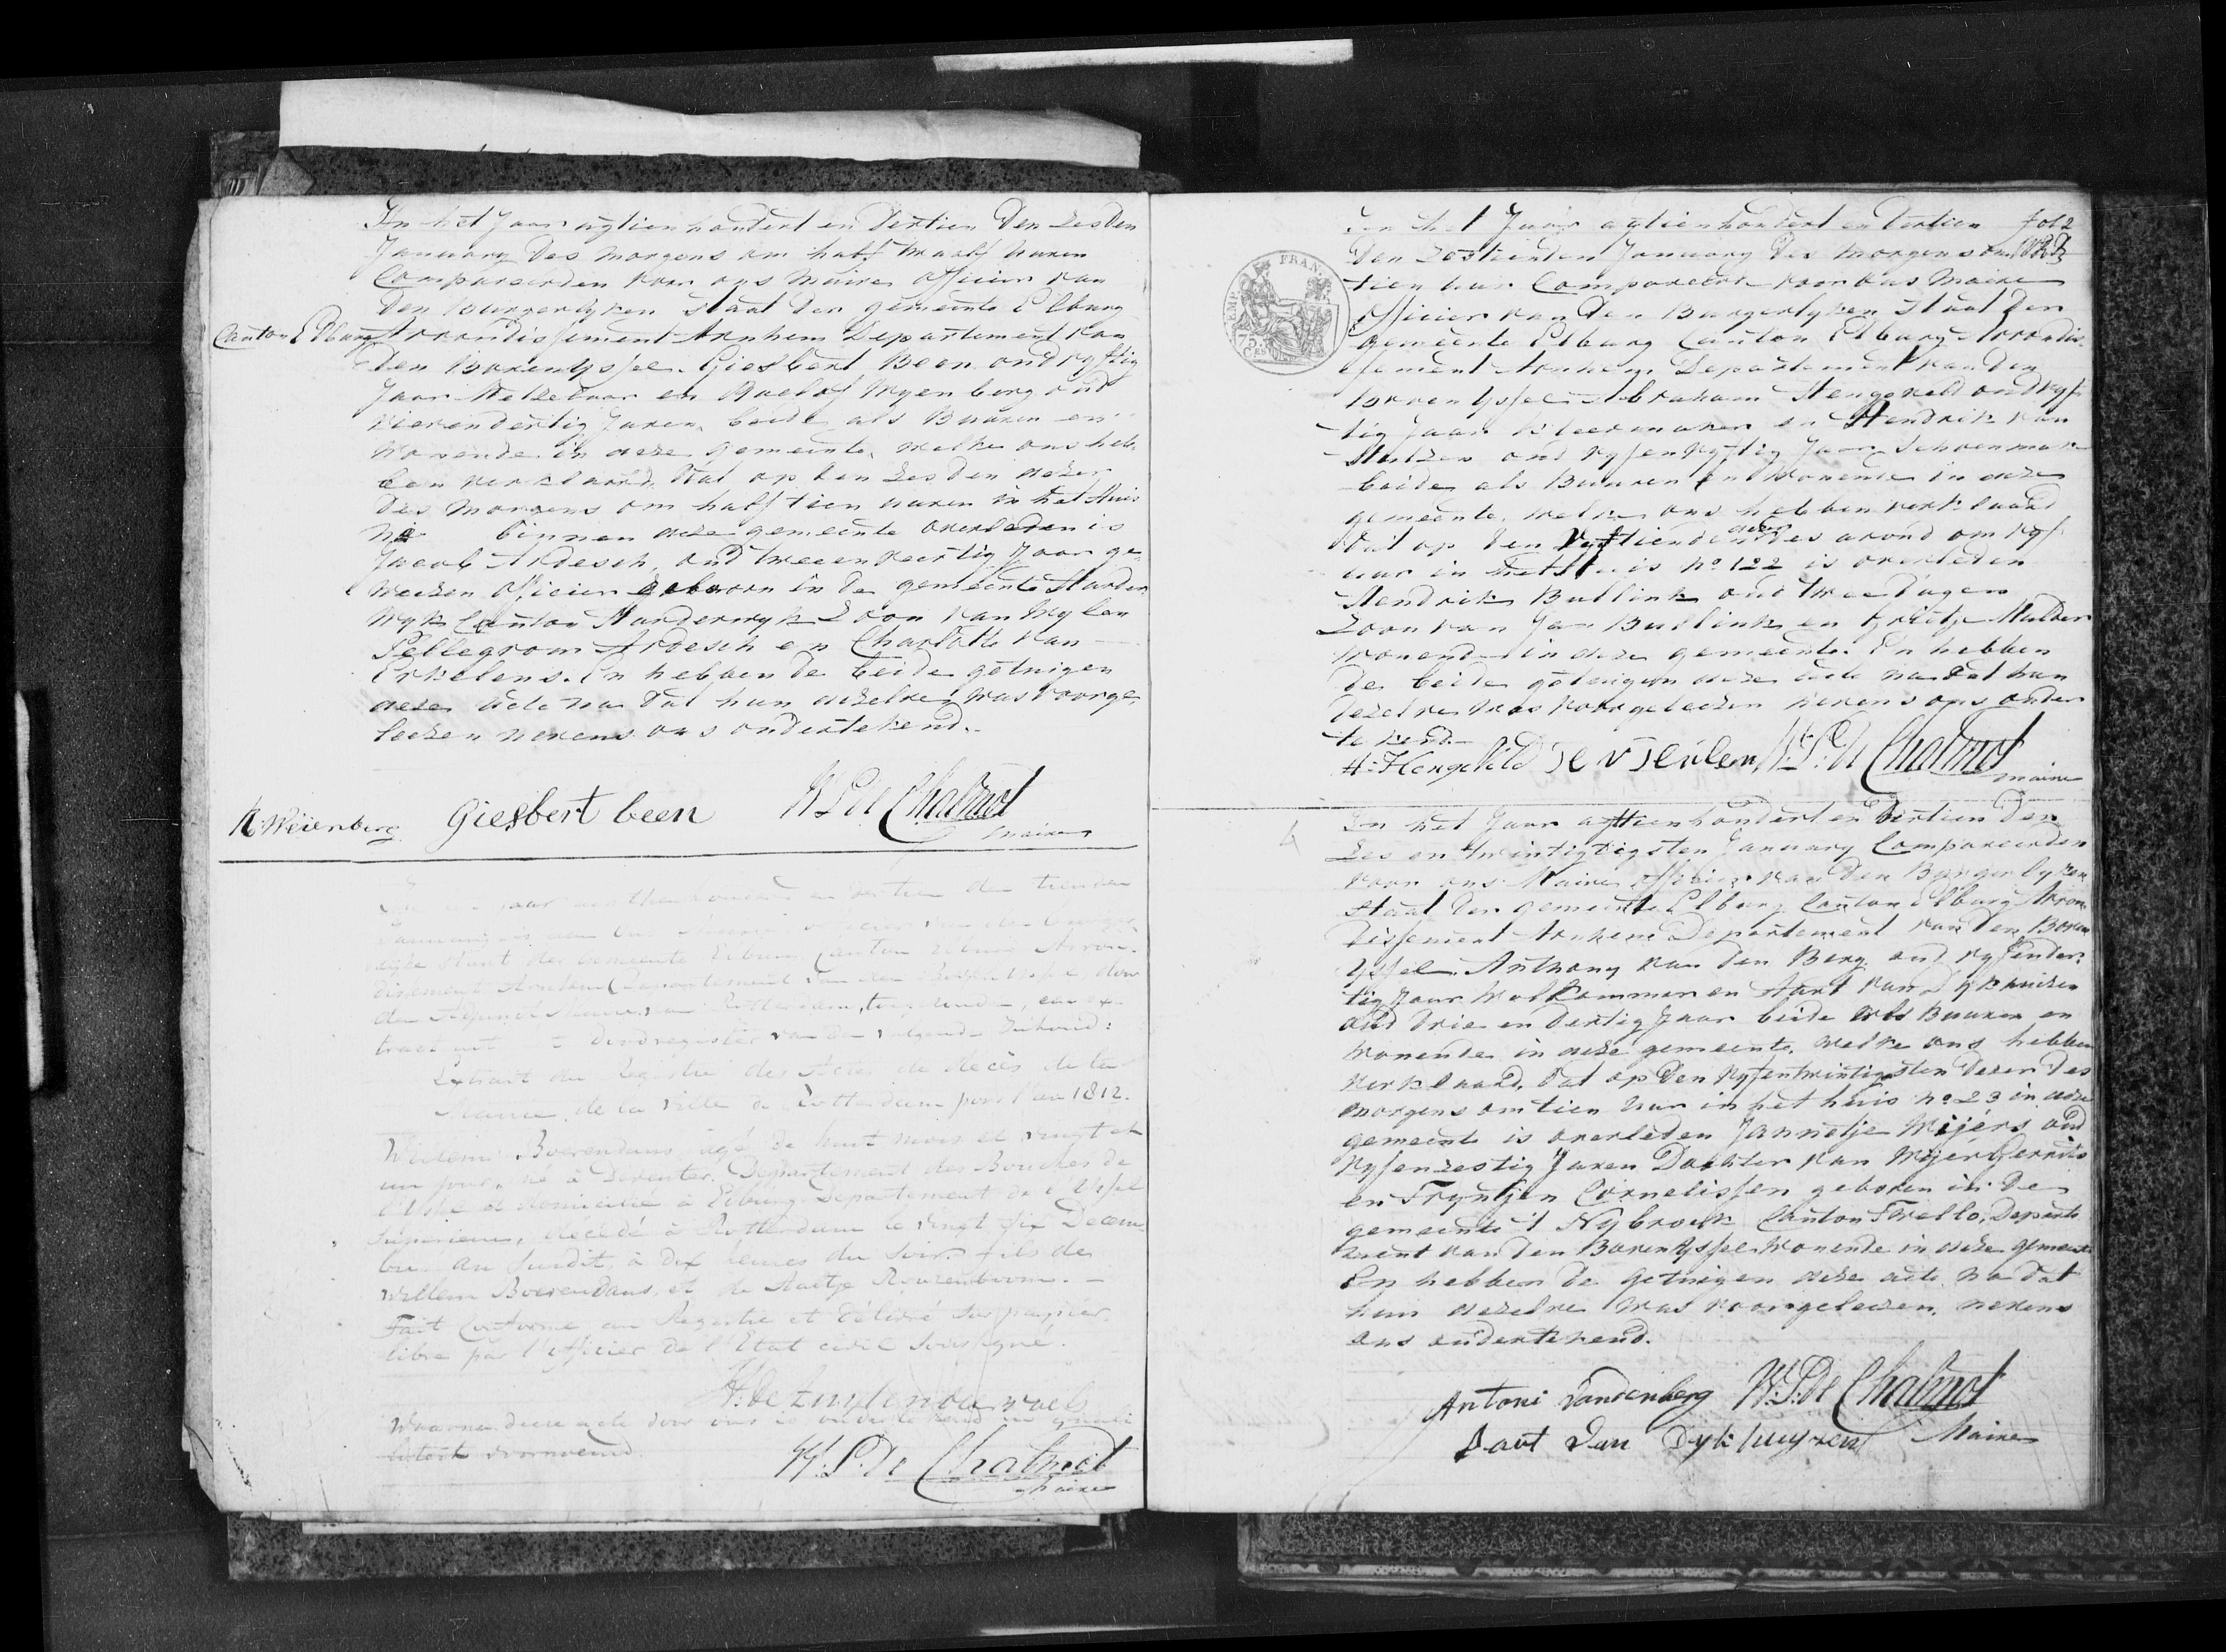 In het Jaar agtienhondert en dertien den zesden
January des morgens om half twaalf uuren
Compareerden voor ons Maire officier van
den burgerlyken staat der gemeente Elburg
Canton Elburg Arrondissement Arnhem Departement van
den Bovenyssel. Giesbert Been oud vyftig
Jaar Metzelaar en Roelof Weyenberg oud
vierendertig Jaren, beide als Buuren en
wonende in deze gemeente, welke ons heb
ben verklaard, dat op den zesden dezer
des morgens om half tien uuren in het Huis
No binnen deze gemeente overleden is
Jacob Ardesch, oud tweeenveertig Jaar ge
weezen Officier geboorn in de gemeente Harder
wyk Canton Harderwyk Zoon van wylen
Pellegrom Ardesch en Charlotte van
Erkelens. En hebben de beide getuigen
deze acte na dat hun dezelve was voorge
leezen nevens ons ondertekend.
R: Weienberg Giesbert been W. P. de Chalmot
Maire
jaar achttienhonderd en dertien den tienden
January is aan ons Maire officier van den burger
lijke staat der Gemeente Elburg Canton Elburg Arron-
dissement Arnhem Departement van den Boven Yssel door
den Adjunct Maire van Rotterdam, een ex
tract uit doodregister van den volgende Inhoud:
Extrait du Registre des Actes de décès de la
Mairie de la Ville de Rotterdam pour l'an 1812.
Willem Boerendans agé de huit mois et vingt et
un jour, né à Deventer Departement des Bouches de
l'Yssel et domicilié à Elburg Departement de l'Yssel
Supérieur, décédé à Rotterdam le vingt six Decem
bre An Susdit, à dix heures du Soir. fils de
Willem Boerendans, et de Aaltje Rouzenboom. -
Fait conforme au Registre et délivré sur papier
libre par l'officier de l'Etat civil soussigné.
Waarna deeze acte door ons is ondertekend in quali
teit voornoemd.
W. P. de Chalmot
Maire
In het Jaar agtienhondert en dertien fol 2
den zestienden January des morgens om
tien uur Compareerde voor ons Maire
officier van den Burgerlyken Staat der
gemeente Elburg Canton Elburg Arrondis
sement Arnhem Departement van den
Boven Yssel Abraham Hengeveld oud vyf
tig Jaar Kleermaker en Hendrik van
oud vyfenvyftig Jaar Schoenmaker
beide als Buuren en wonende in deze
gemeente, welke ons hebben verklaard
dat op den vyftienden dezer des avond om vyf
uur in het Huis No 122 is overleden
Hendrik Bullink oud twee dagen
Zoon van Jan Bullink en Mulder
wonende in deze gemeente. En hebben
de beide getuigen deze acte na dat hun
dezelve was voorgeleezen nevens ons onder
tekend.
W. P. de Chalmot
maire
4
In het Jaar agttienhondert en dertien den
zes en twintigtigsten January Compareerden
voor ons Maire officier van den Burgerlyken
Staat der gemeente Elburg Canton Elburg Arron
dissement Arnhem Departement van den Boven
Yssel. Anthony van den Berg oud vyfender
tig Jaar Wolkammer en Aart van Dykhuizen
oud drie en dertig Jaar beide als Buuren en
wonende in deze gemeente, welke ons hebben
verklaard, dat op den vyfentwintigsten dezer des
morgens om tien uur in het huis No 23 in deze
gemeente is overleden Jannetje Wijers oud
vyfenzestig Jaren Dochter van Wijer Gerrits
en Tryntjen Cornelissen geboren in de
gemeente 't Nybroek Canton Twello, Departe
ment van den Bovenyssel Wonende in deze gemeente
En hebben de getuigen deze acte na dat
hun dezelve was voorgeleezen, nevens
ons ondertekend.
Antoni vandenberg W. P. de Chalmot
aart Van Dyk huyzen Maire
FRAN
75